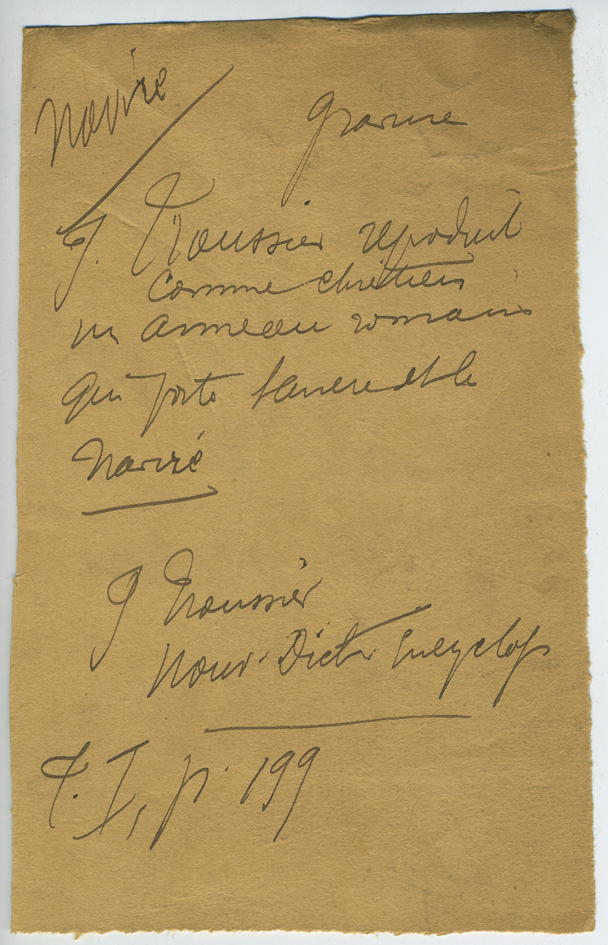 Navire
gravure
J. Trousset reproduit
comme chrétien
un anneau romain
qui porte l'ancre et le
Navire
J Trousset
Nouv. Dict. Encyclop
T. I, p. 199